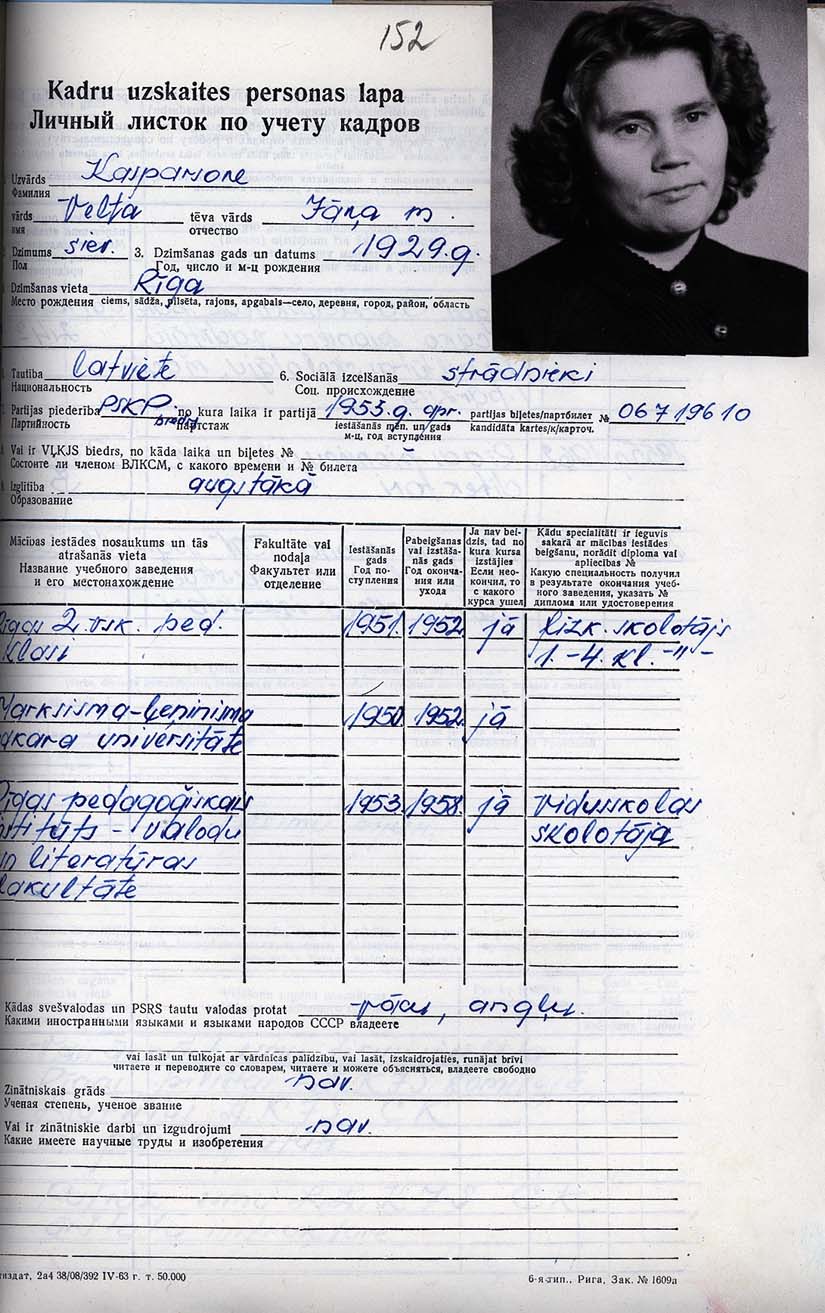 152
Kadru uzskaites personas lapa
Личный листок по учету кадров
Uzvārds Kasparsone
Фамилия
vārds Velta tēva vārds Jāņa m.
имя отчество
Dzimums siev. 3. Dzimšanas gads un datums 1929.g.
Пол Год, число и м-ц рождения
Dzimšanas vieta Rīga
Место рождения ciems, sādža, pilsēta, rajons, apgabals—село, деревня, город, район, область
Tautība latviete 6. Sociālā izcelšanās strādnieki
Национальность Соц. происхождение
Partijas piederība PSKP no kura laika ir partijā 1953.g. apr. partijas biļetes/партбилет № 06719610
Партийность партстаж iestāšanās mēn. un gads kandidāta kartes/к/карточ.
м-ц, год вступления
Vai ir VĻKJS biedrs, no kāda laika un biļetes № –
Состоите ли членом ВЛКСМ, с какого времени и № билета
Izglītība augstākā
Образование
Mācības iestādes nosaukums un tās atrašanās vieta
Название учебного заведения и его местонахождение
Fakultāte vai nodaļa
Факультет или отделение
Iestāšanās gads
Год поступления
Pabeigšanas vai izstāšanās gads
Год окончания или ухода
Ja nav beidzis, tad no kura kursa izstājies
Если неокончил, то с какого курса ушел
Kādu specialitāti ir ieguvis sakarā ar mācības iestādes beigšanu, norādīt diploma vai apliecības №
Какую специальность получил в результате окончания учебного заведения, указать № диплома или удостоверения
Rīgas 2. vsk. ped. 1951. 1952 jā fizk. skolotājs
klasi 1.-4. kl. -"-
Marksisma-ļeņinisma 1950. 1952. jā
vakara universitāte
Rīgas pedagoģiskais 1953. 1958. jā vidusskolas
institūts - valodu skolotāja
un literatūras
fakultāte
Kādas svešvalodas un PSRS tautu valodas protat vāju, angļu.
Какими иностранными языками и языками народов СССР владеете
vai lasāt un tulkojat ar vārdnīcas palīdzību, vai lasāt, izskaidrojaties, runājat brīvi
читаете и переводите со словарем, читаете и можете объясняться, владеете свободно
Zinātniskais grāds nav.
Ученая степень, ученое звание
Vai ir zinātniskie darbi un izgudrojumi nav.
Какие имеете научные труды и изобретения
издат, 2а4 38/08/392 IV-63 г. т. 50.000 6-я тип., Рига, Зак. № 1609а